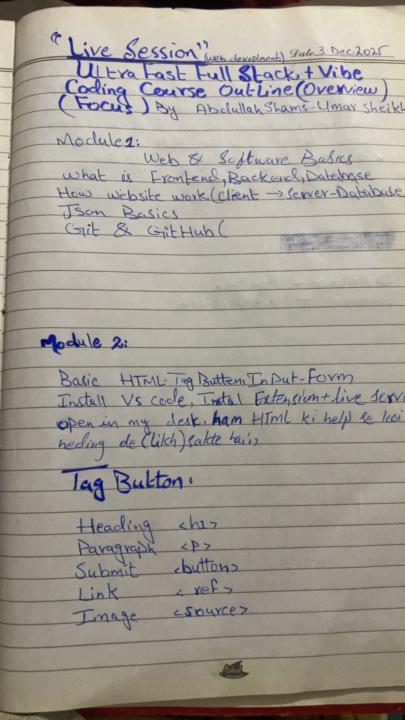 "Live Session" (web development) Date 3 Dec 2025
Ultra Fast Full Stack + Vibe
Coding Course OutLine (Overview)
(Focus) By Abdullah Shams-Umar Sheikh
Module 1:
Web & Software Basics
what is Frontend, Backend, Datebase
How website work (Client → Server-Database
Json Basics
Git & GitHub (
Module 2:
Basic HTML-Tag Button, InPut-Form
Install Vs code, Instal Extension + live serv
open in my desk. ham HTMl ki help se koi
heding de (likh) sakte hain
Tag Button.
Heading <h1>
Paragraph <P>
Submit <button>
Link < ref >
Image <source>